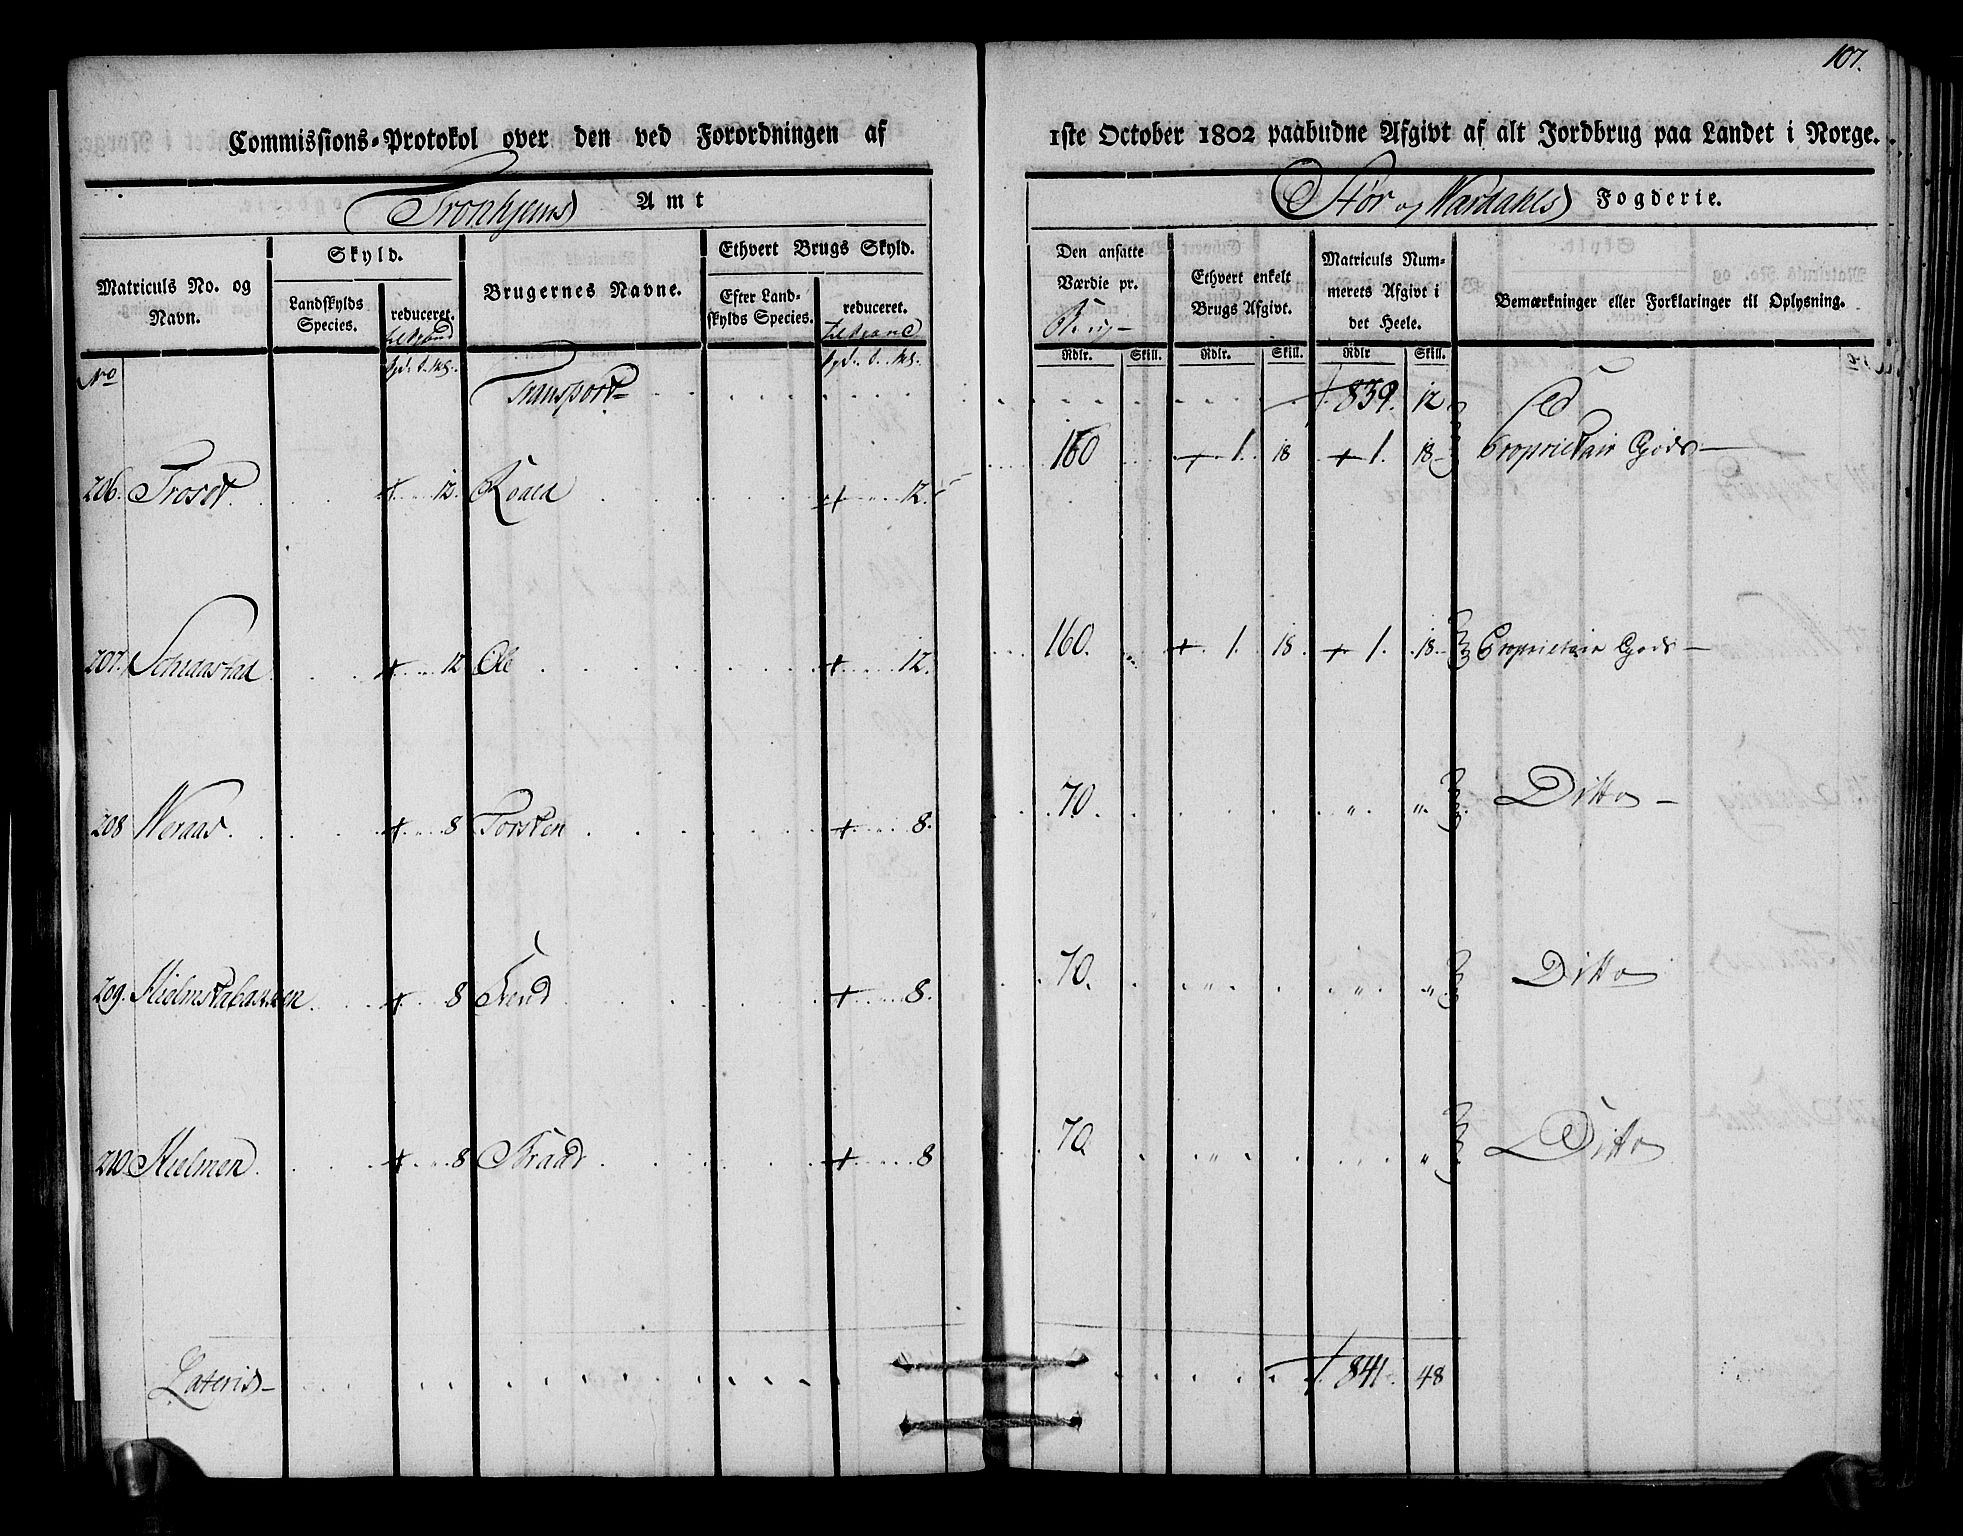 107.
Commissions-Protokol over den ved Forordningen af 1ste October 1802 paabudne Afgivt af alt Jordbrug paa Landet i Norge.
Tronhjems Amt
Stør og Wærdahls Fogderie.
Matriculs No. og Navn.
Skyld.
Landskylds Species.
reduceret.
Brugernes Navne.
Ethvert Brugs Skyld.
Efter Landskylds Species.
reduceret.
Den ansatte Værdie pr.
Ethvert enkelt Brugs Afgivt.
Matriculs Nummerets Afgivt i det Heele.
Bemærkninger eller Forklaringer til Oplysning.
Rdlr. Skill. Rdlr. Skill. Rdlr Skill.
No
Transport 839. 12
206. Troset 12. Roald 12. 160 1. 18 1. 18 Proprietair Gods
207. 12 Ole 12. 160. 1. 18. 1. 18 Proprietair Gods
208 Weraas 8 Torsten 8. 70. Ditto
209. 8 8. 70. Ditto
210 Hielmen 8 8 70. Ditto
Lateris 841. 48